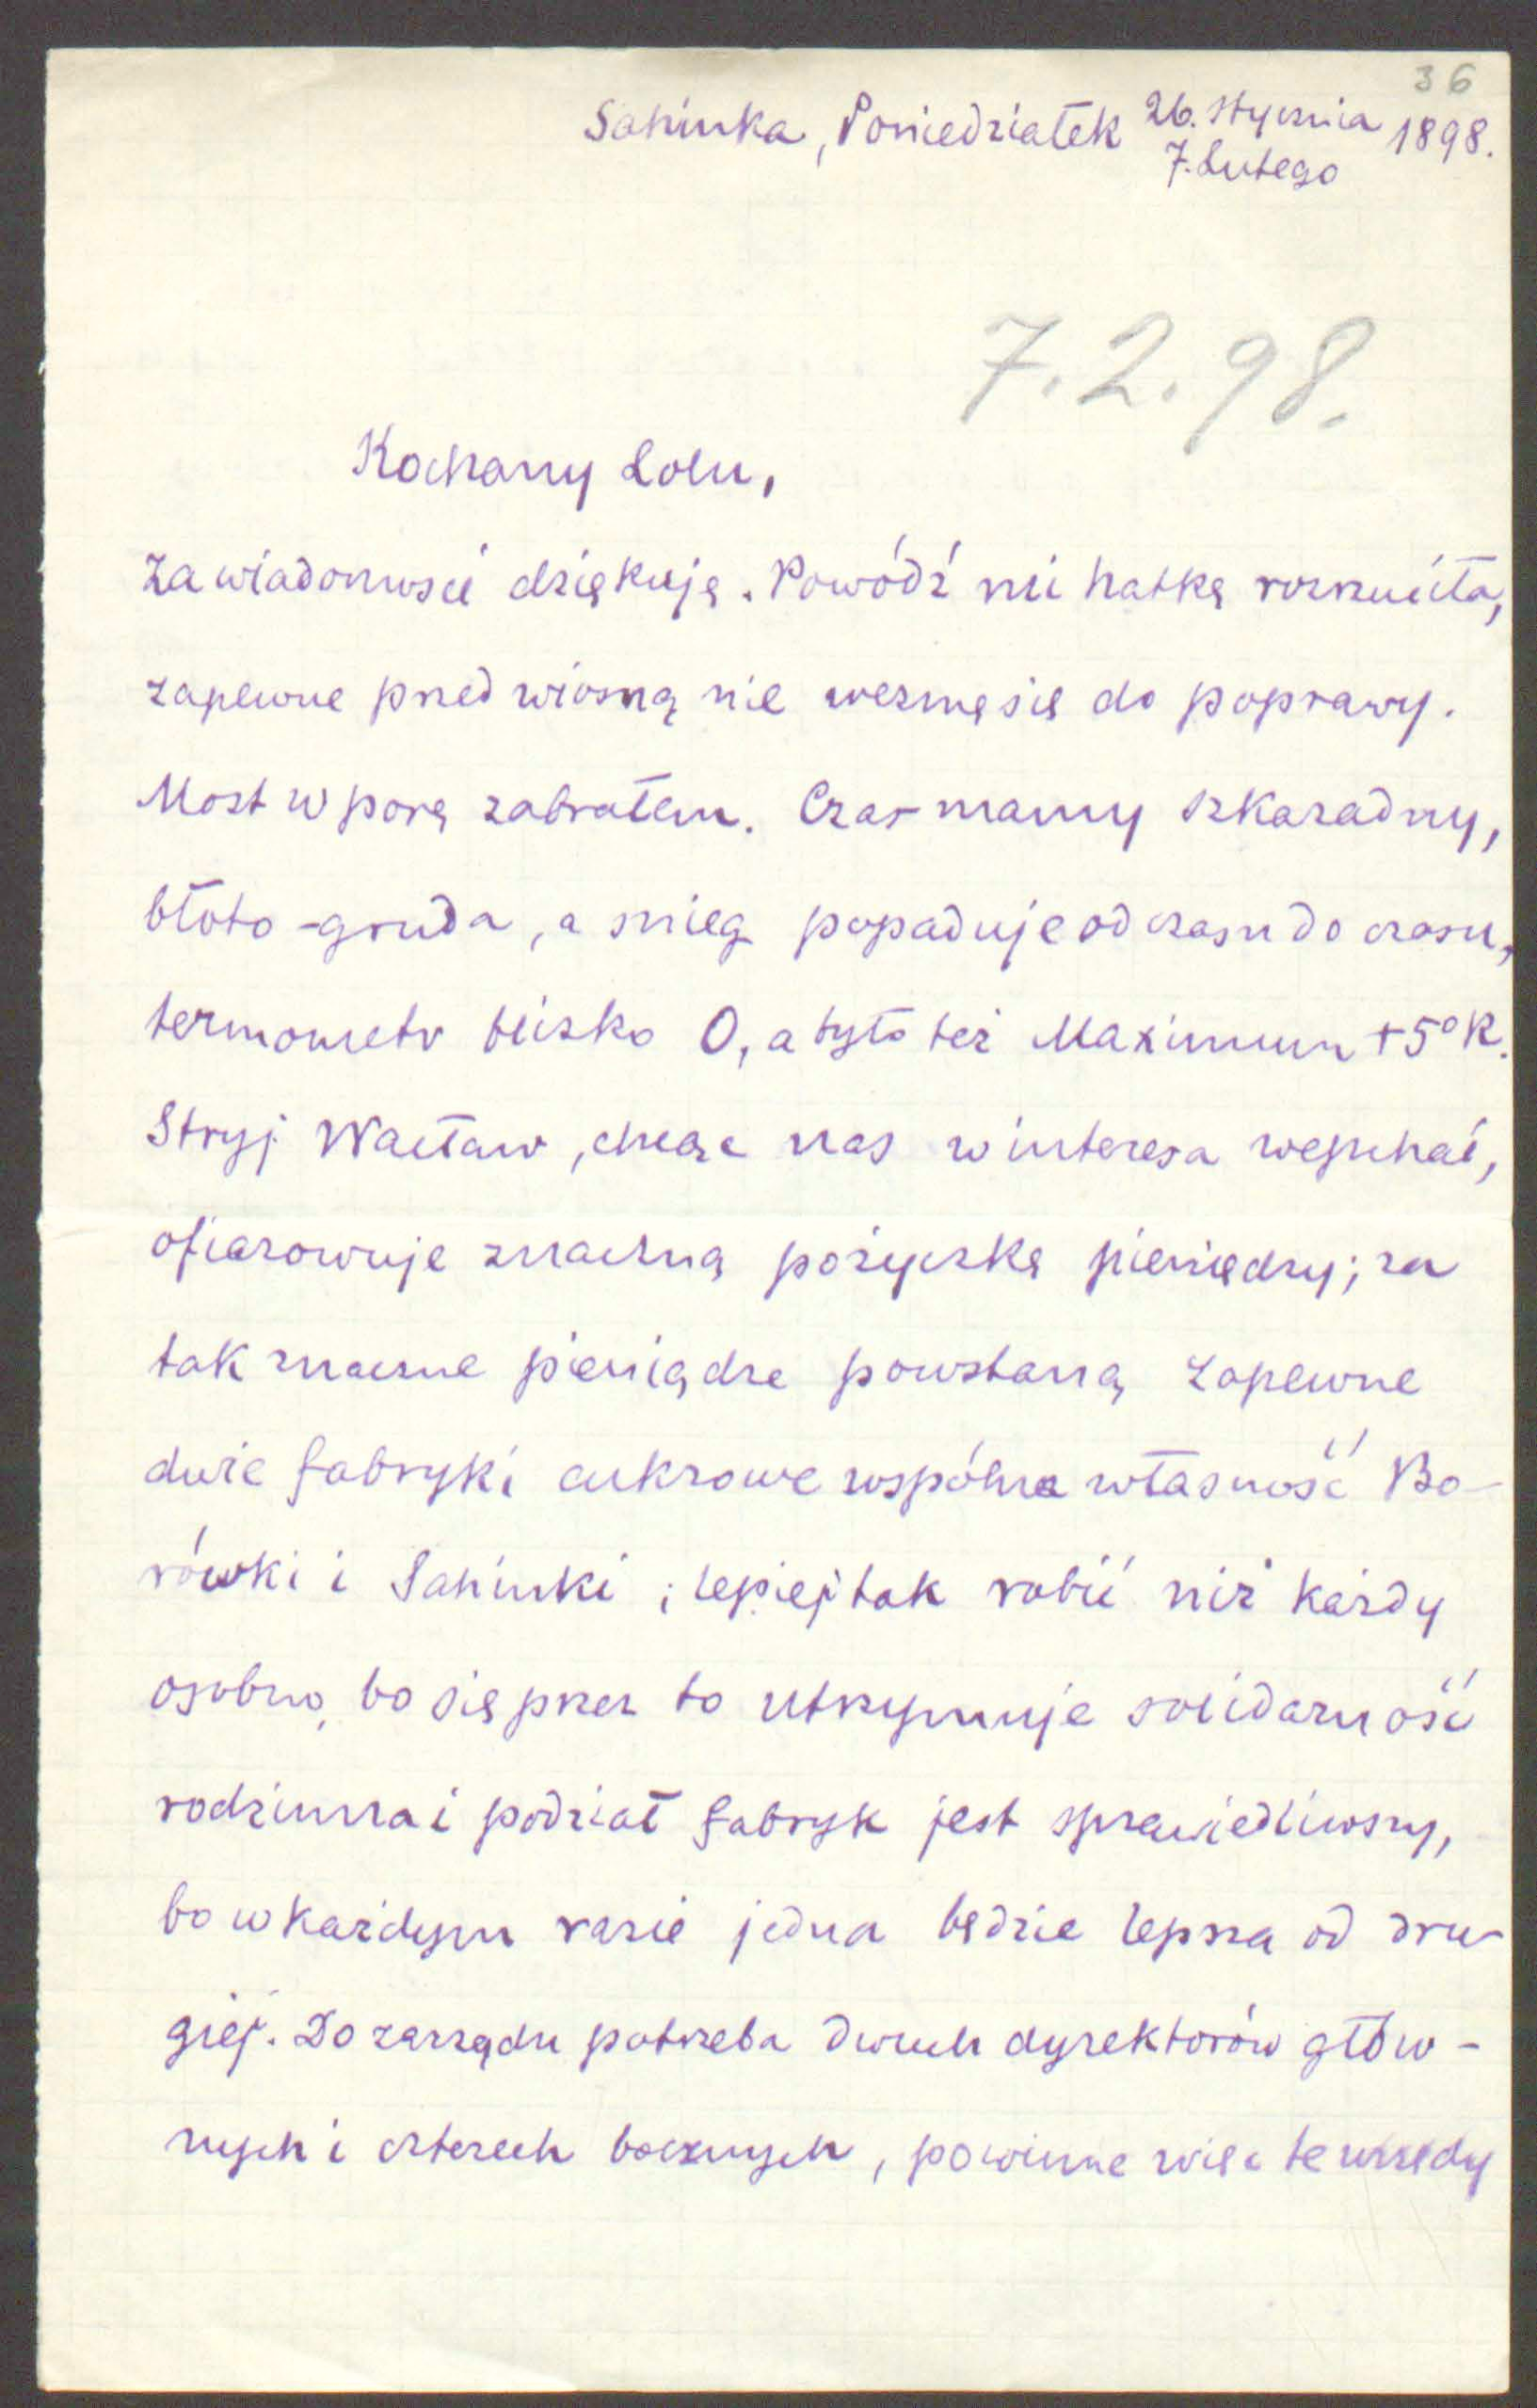 36
Sahinka, Poniedziałek 26. Stycznia 1898.
7. Lutego
7.2.98.
Kochany Lolu,
za wiadomości dziękuję. Powódź mi hatkę rozrzuciła,
zapewne przed wiosną nie wezmę się do poprawy.
Most w porę zabrałem. Czas mamy szkaradny,
błoto-gruda, a snieg popaduje od czasu do czasu,
termometr blizko 0, a było też Maximum +5°R.
Stryj Wacław, chcąc nas w interesa wepchać,
ofiarowuje znaczną pożyczkę pieniędzy; za
tak znaczne pieniądze powstaną zapewne
dwie fabryki cukrowe wspólna własność Bo-
rówki i Sahinki; lepiej tak robić niż każdy
osobno, bo się przez to utrzymuje solidarność
rodzinna i podział fabryk jest sprawiedliwszy,
bo w każdym razie jedna będzie lepsza od dru-
giej. Do zarządu potrzeba dwuch dyrektorów głów-
nych i czterech bocznych, powinne więc te urzędy